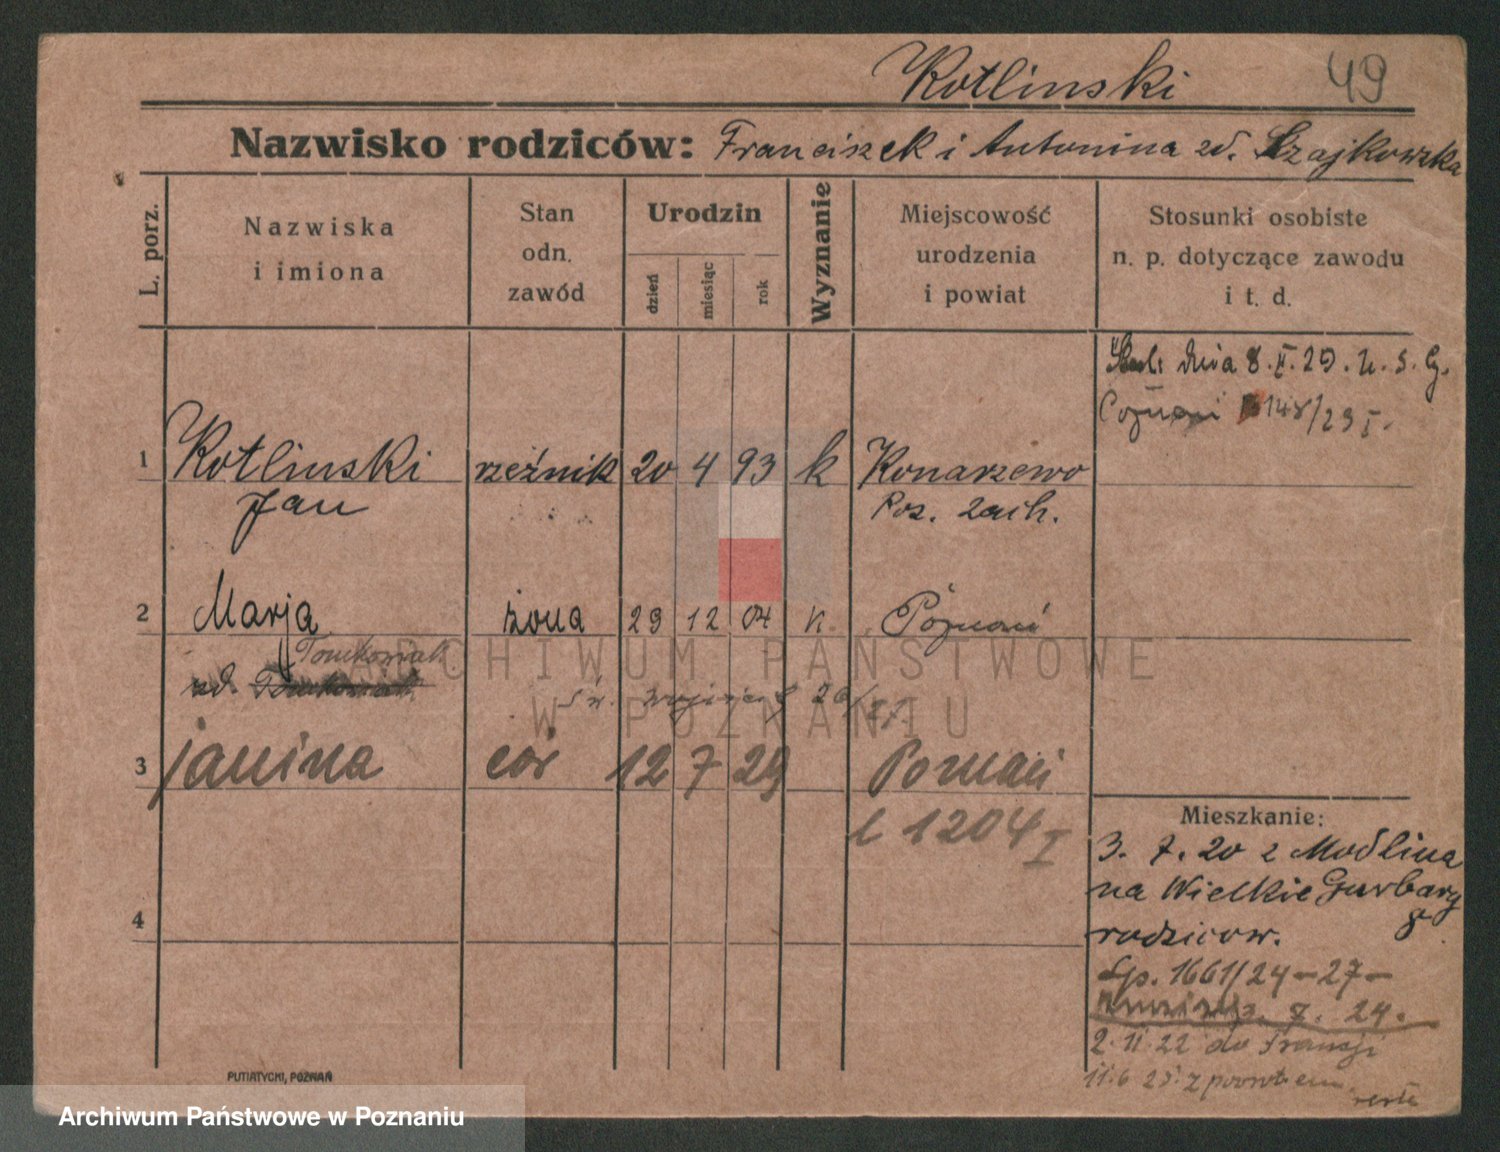 Kotlinski
49
Nazwisko rodziców: Franciszek i Antonina zd. Szajkowska
L. porz.
Nazwiska
i imiona
Stan
odn.
zawód
Urodzin
dzień
miesiąc
rok
Wyznanie
Miejscowość
urodzenia
i powiat
Stosunki osobiste
n. p. dotyczące zawodu
i t. d.
dnia 8. 29. U. S. C.
Poznań 148/29 I.
1 Kotlinski rzeźnik 20 4 93 k Konarzewo
Jan Poz. zach.
2 Marja żona 29 12 04 k. Poznań
Tomkowiak
zd.
3 janina cór 12 7 29 Poznań
l 1204 I
4
Mieszkanie:
3. 7. 20 z Modlina
na Wielkie Garbary
rodzicow.
Sp. 1661/24-27-
7. 24.
2.11.22 do Francji
11.6 z powrotem
PUTIATYCKI, POZNAŃ
ARCHIWUM PAŃSTWOWE
W POZNANIU
Archiwum Państwowe w Poznaniu